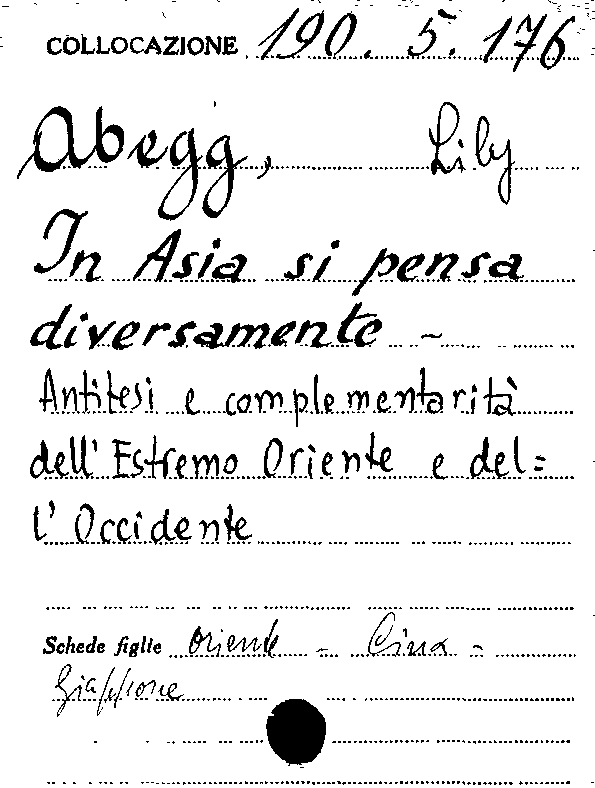 COLLOCAZIONE 190. 5. 176
Abegg, Lily
In Asia si pensa
diversamente -
Antitesi e complementarità
dell'Estremo Oriente e del=
l'Occidente
Schede figlie Oriente - Cina -
Giappone